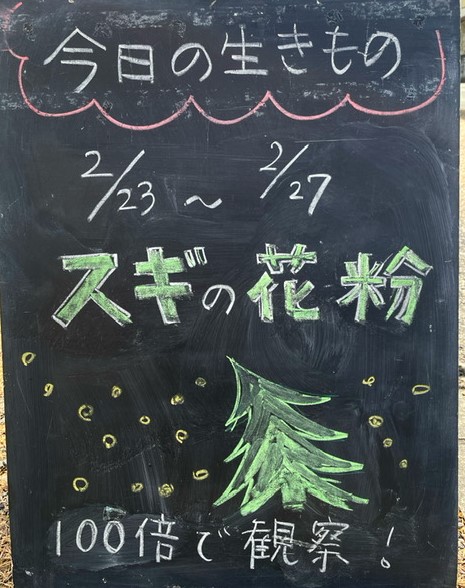 今日の生きもの
2/23 ~ 2/27
スギの花粉
100倍で観察!